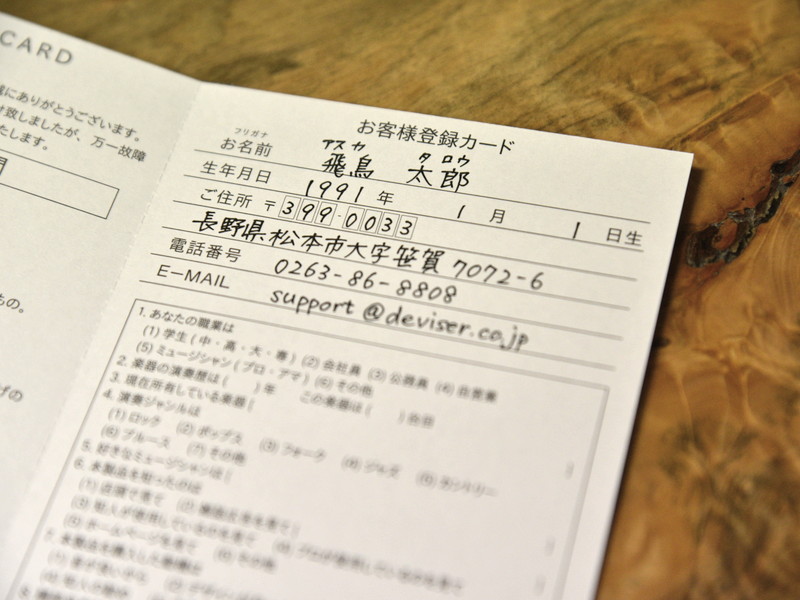 CARD
にありがとうございます。
致しましたが、万一故障
たします。
お客様登録カード
フリガナ アスカ タロウ
お名前 飛鳥 太郎
生年月日 1991年 1月 1日生
ご住所 〒399-0033
長野県松本市大字笹賀7072-6
電話番号 0263-86-8808
E-MAIL support@deviser.co.jp
1. あなたの職業は
(1) 学生 (中・高・大・専) (2) 会社員 (3) 公務員 (4) 自営業
(5) ミュージシャン (プロ・アマ) (6) その他
2. 楽器の演奏歴は ( ) 年 この楽器は ( ) 台目
3. 現在所有している楽器 [ ]
4. 演奏ジャンルは
(1) ロック (2) ポップス (3) フォーク (4) ジャズ (5) カントリー
(6) ブルース (7) その他
5. 好きなミュージシャンは [ ]
6. 本製品を知ったのは
(1) 店頭で見て
(5) ホームページを見て (6) その他
もの。
げの